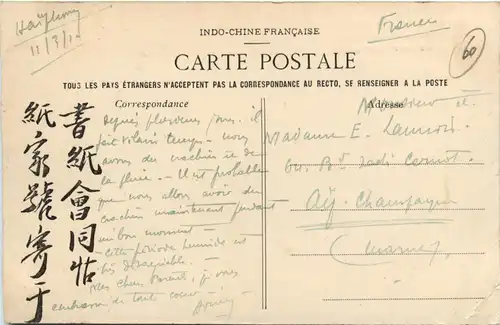 Haïphong
11/3/10
France
60
INDO-CHINE FRANÇAISE
CARTE POSTALE
TOUS LES PAYS ÉTRANGERS N'ACCEPTENT PAS LA CORRESPONDANCE AU RECTO, SE RENSEIGNER A LA POSTE
Correspondance
Adresse
Depuis plusieurs jours il
fait vilain temps - nous
avons des crachins et de
la pluie - Il est probable
que nous allons avoir du
crachin maintenant pendant
un bon moment -
Cette période humide est
très désagréable -
Mes chers Parents, je vous
embrasse de tout coeur -
Monsieur et
Madame E.
Bd Sadi Carnot
Aÿ-Champagne
(Marne)
書紙會同帖
紙家號寄于